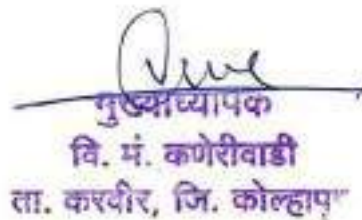 मुख्याध्यापक
वि. मं. कणेरीवाडी
ता. करवीर, जि. कोल्हापूर